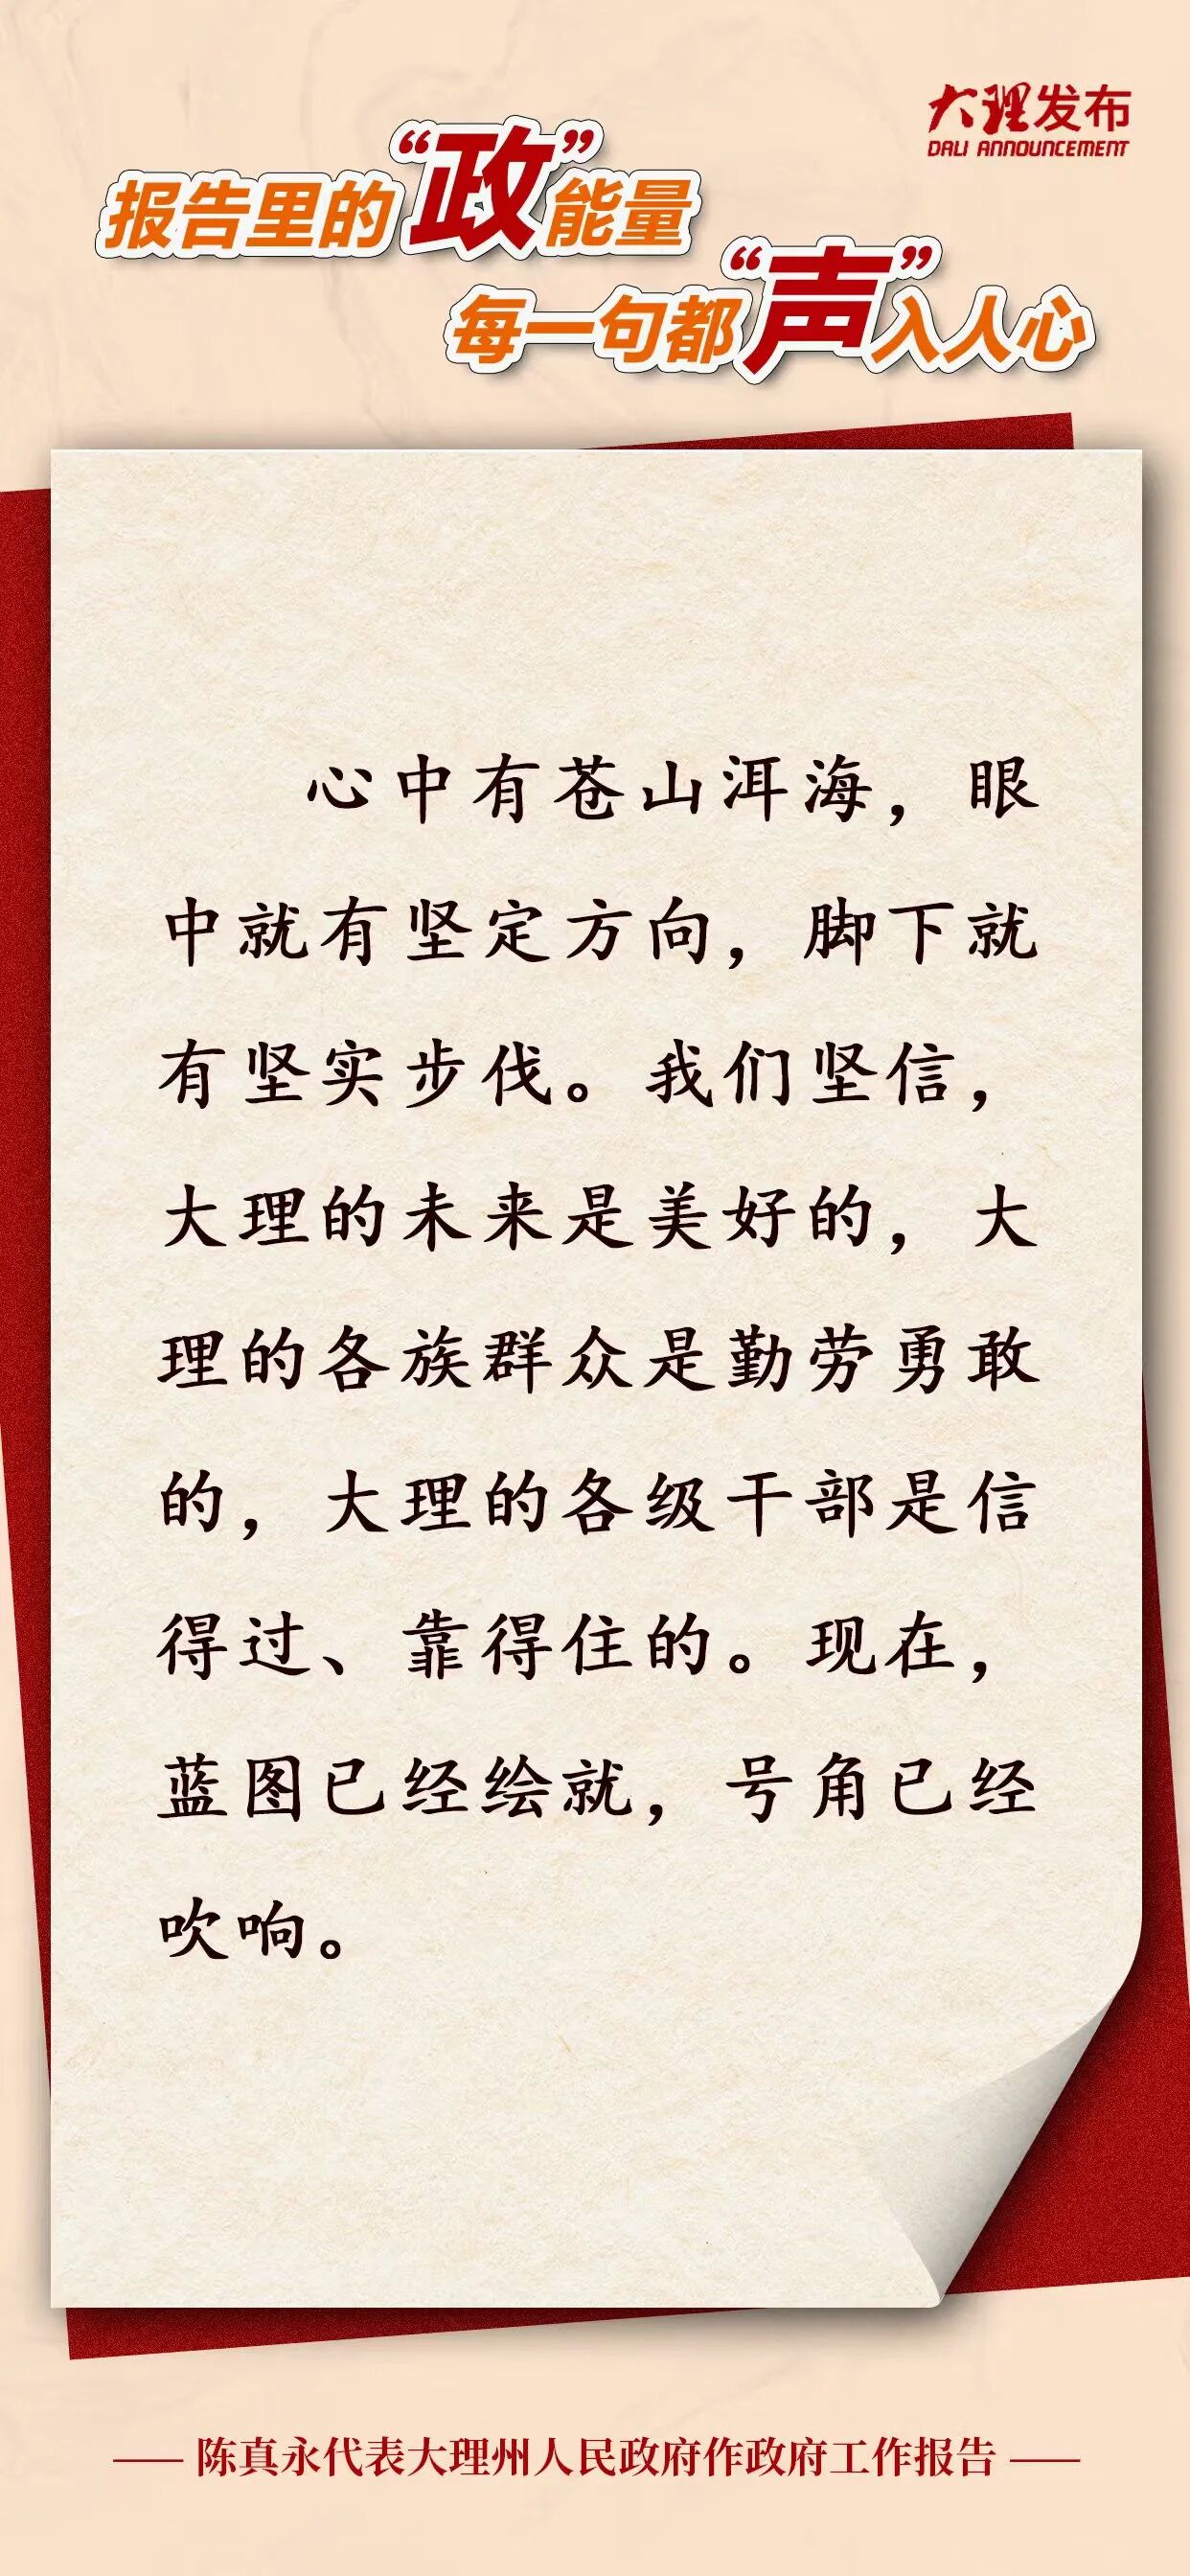 大理发布
DALI ANNOUNCEMENT
报告里的“政”能量
每一句都“声”入人心
心中有苍山洱海，眼
中就有坚定方向，脚下就
有坚实步伐。我们坚信，
大理的未来是美好的，大
理的各族群众是勤劳勇敢
的，大理的各级干部是信
得过、靠得住的。现在，
蓝图已经绘就，号角已经
吹响。
—— 陈真永代表大理州人民政府作政府工作报告 ——